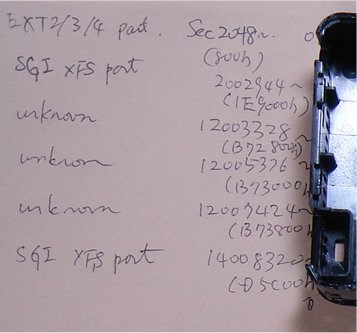 EXT2/3/4 part. Sec2048~ 0
(800h)
SGI XFS part
2002944~
(1E9000h)
unknown
12003328~
(B72800h)
unknown
12005376~
(B73000h
unknown
12007424~
(B73800h
SGI XFS part
14008320~